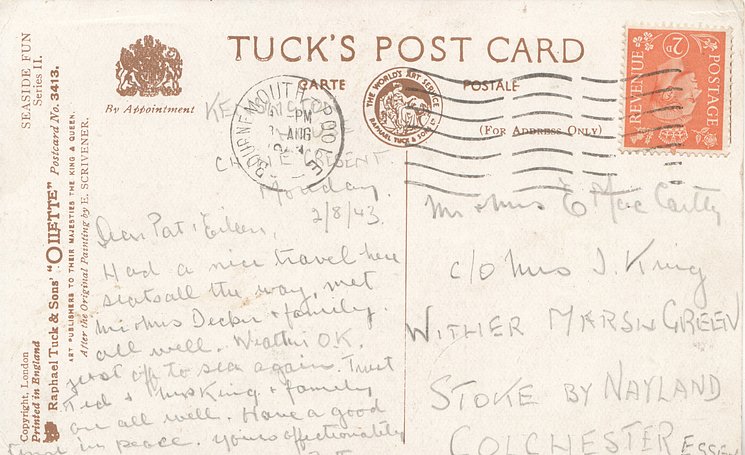 TUCK'S POST CARD
CARTE POSTALE
By Appointment
(FOR ADDRESS ONLY)
THE WORLD'S ART SERVICE
RAPHAEL TUCK & SONS LTD
POSTAGE
REVENUE
2D
BOURNEMOUTH POOLE
PM
AUG
SEASIDE FUN
Series II.
Raphael Tuck & Sons' "OILETTE" Postcard No. 3413.
ART PUBLISHERS TO THEIR MAJESTIES THE KING & QUEEN.
After the Original Painting by E. SCRIVENER.
Copyright, London
Printed in England
CRESENT
Monday
2/8/43.
Dear Pat & Eileen,
Had a nice travel here
seats all the way, met
mr & mrs Decker & family.
all well. Weather O.K.
just off to sea again. Trust
Ted & Mrs King & family
are all well. Have a good
time in peace. yours affectionately
Mr & Mrs E MacCartty
c/o Mrs J. King
WITHER MARSH GREEN
STOKE BY NAYLAND
COLCHESTER ESSEX